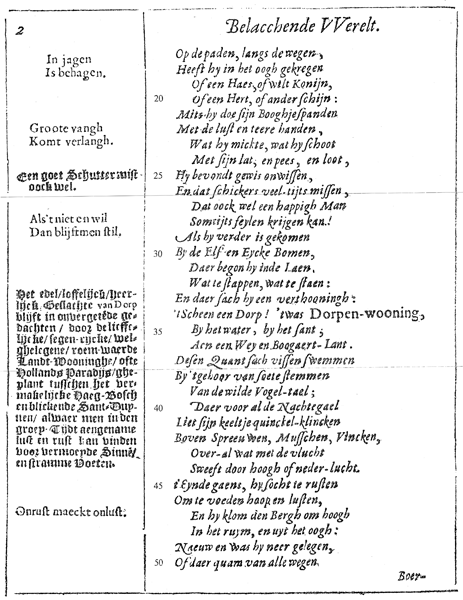 2
Belacchende VVerelt.
In jagen
Is behagen.
Groote vangh
Komt verlangh.
Een goet Schutter mist
oock wel.
Als't niet en wil
Dan blijftmen stil.
Het edel/loffelijck/heer-
lijck, Geslachte van Dorp
blijft in onvergetede ge-
dachten / door
lijcke/segen-rijcke/wel-
ghelegene/roem-waerde
Landt-Wooninghe/ofte
Hollands Paradijs/ghe-
plant tusschen het ver-
makelijcke Haeg-Bosch
en blickende Sant-Duy-
nen / alwaer men in den
groen-Tijdt aengename
lust en rust kan vinden
voor vermoeyde Sinnen/
en stramme Voeten.
Onrust maeckt onlust.
Op de paden, langs de wegen,
Heeft hy in het oogh gekregen
Of een Haes, of wilt Konijn,
20 Of een Hert, of ander schijn:
Mits hy doe sijn Booghje spanden
Met de lust en teere handen,
Wat hy mickte, wat hy schoot
Met sijn lat, en pees, en loot,
25 Hy bevondt gewis onwissen,
En dat schickers veel-tijts missen,
Dat oock wel een happigh Man
Somtijts feylen krijgen kan.
Als hy verder is gekomen
30 By de Elst en Eycke Bomen,
Daer begon hy inde Laen.
Wat te stappen, wat te staen:
En daer sach hy een verthooningh:
'tScheen een Dorp! 'twas Dorpen-wooning,
35 By het water, by het sant;
Aen een Wey en Boogaert-Lant.
Desen Quant sach vissen swemmen
By 'tgehoor van soete stemmen
Van de wilde Vogel-tael;
40 Daer voor al de Nachtegael
Liet sijn keeltje quinckel-klincken
Boven Spreeuwen, Musschen, Vincken,
Over-al wat met de vlucht
Sweeft door hoogh of neder-lucht.
45 t'Eynde gaens, hy socht te rusten
Om te voeden hoop en lusten,
En hy klom den Bergh om hoogh
In het ruym, en uyt het oogh:
Naeuw en was hy neer gelegen,
50 Of daer quam van alle wegen
Boer-